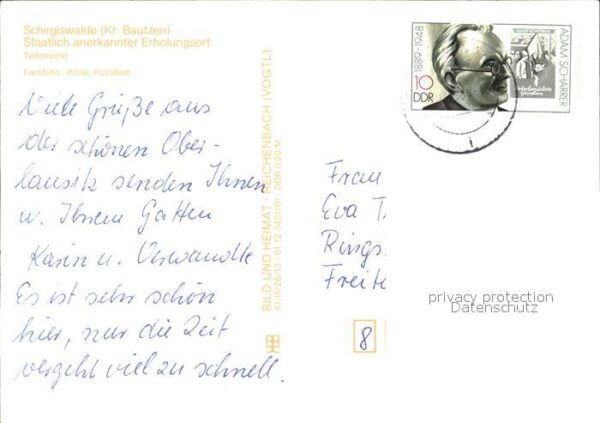 Schirgiswalde (Kr. Bautzen)
Staatlich anerkannter Erholungsort
Teilansicht
Farbfoto: Potsdam
Viele Grüße aus
der schönen Ober-
lausitz senden Ihnen
u. Ihrem Gatten
Karin u. Verwandte
Es ist sehr schön
hier, nur die Zeit
vergeht viel zu schnell.
BILD UND HEIMAT · REICHENBACH (VOGTL)
A1/III/26/13 01 12 3401/01 DDR 0,20 M
1889-1948
10
DDR
ADAM SCHARRER
Frau
Eva T.
Rings.
Freite
privacy protection
Datenschutz
8